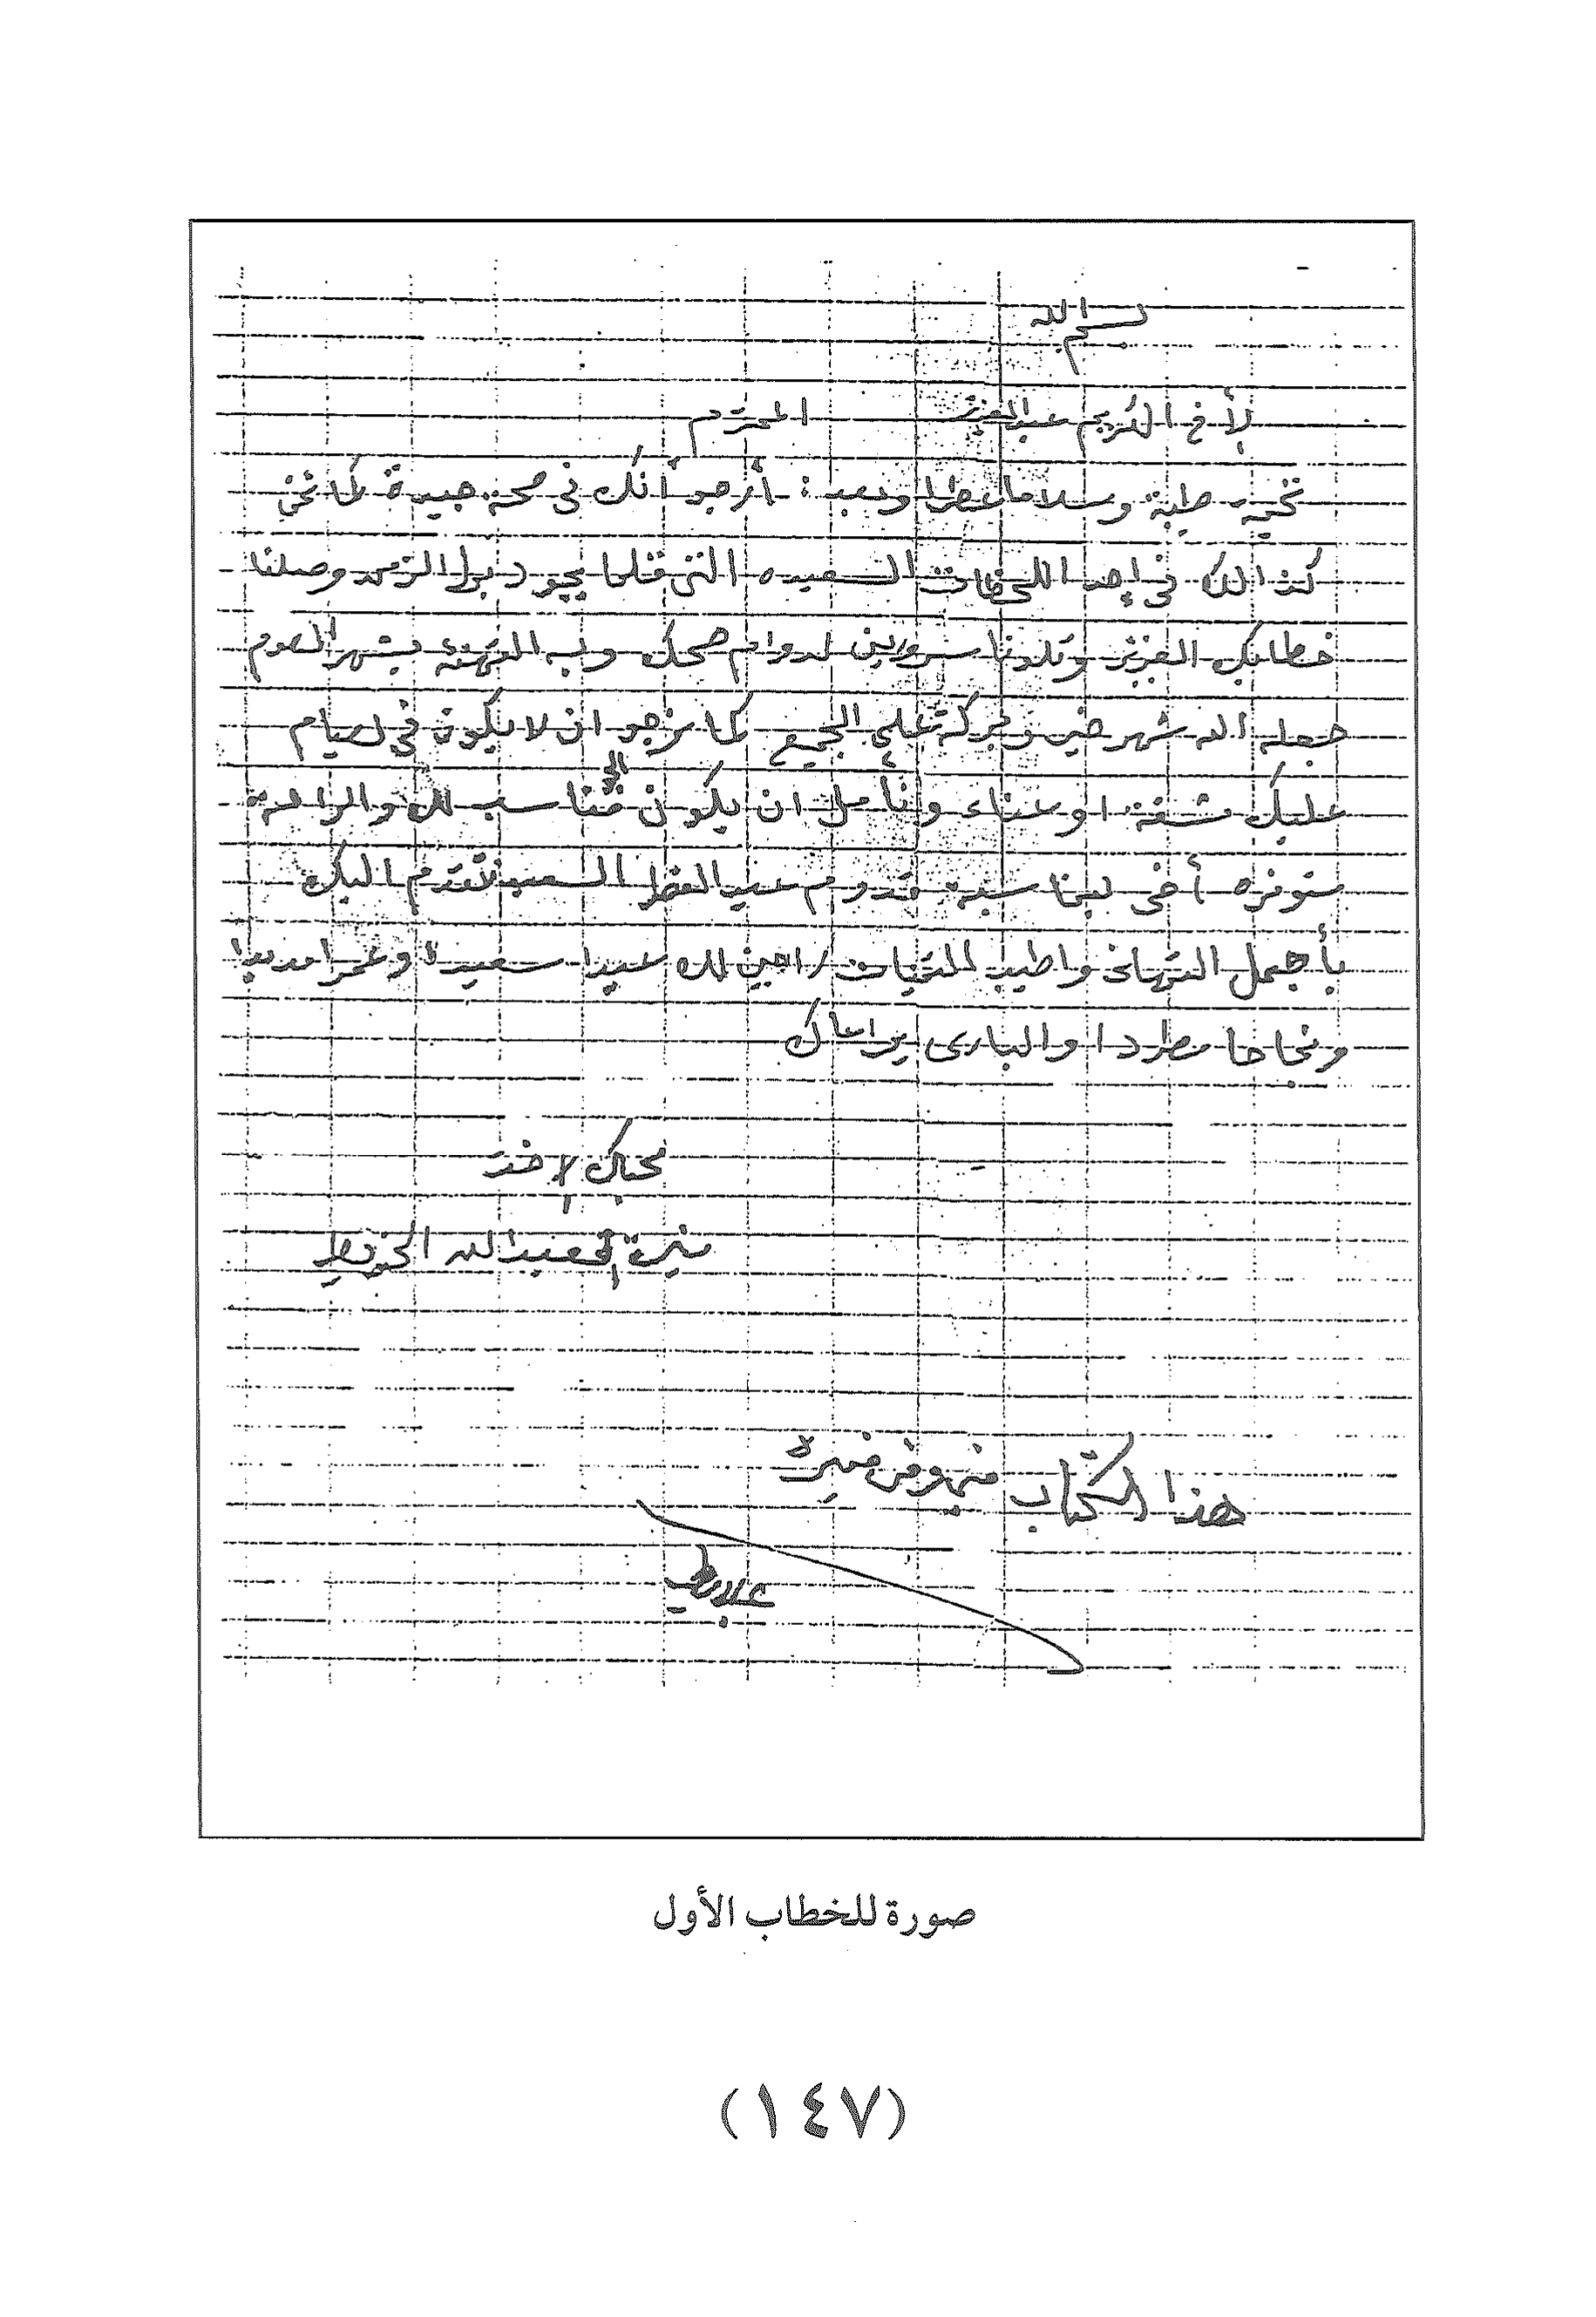 بسم الله
لأخ الكريم عبدالعزيز المحترم
تحية طيبة وسلاما عطرا وبعد : أرجو أنك في صحة جيدة كما نحن
كذالك في إحد اللحظات السعيده التي قلما يجود بها الزمن وصلنا
خطابك العزيز وتلونا سرورين لدوام صحتك وبه التهنئة بشهر الصوم
جعله الله شهر خير وبركة على الجميع كما نرجو ان لا يكون في لصيام
عليك مشقة او عناء ونأمل ان يكون الجو مناسب لك والراحة
متوفره أخي بمناسبة قدوم عيد الفطر السعيد نتقدم اليك
بأجمل التهاني واطيب المتنيات راجين لك عيدا سعيدة وعمرا مديدا
ونجاحا مطردا والباري يراعاك
الاخت
منيرة العبدالله
هذا الكتاب منيرة
صورة للخطاب الأول
(١٤٧)